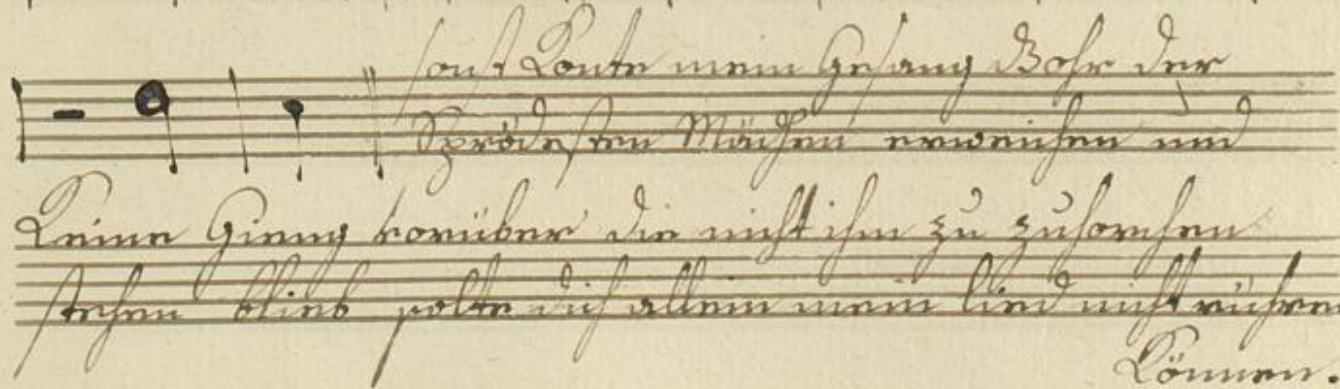 sonst Konte mein Gesang Bohr der
Sprödesten Mädchen erweichen und
Keine Gieng vorüber die nicht ihm zu zuhorchen
stehen blieb solte dich allein mein lied nicht rühren
Können.